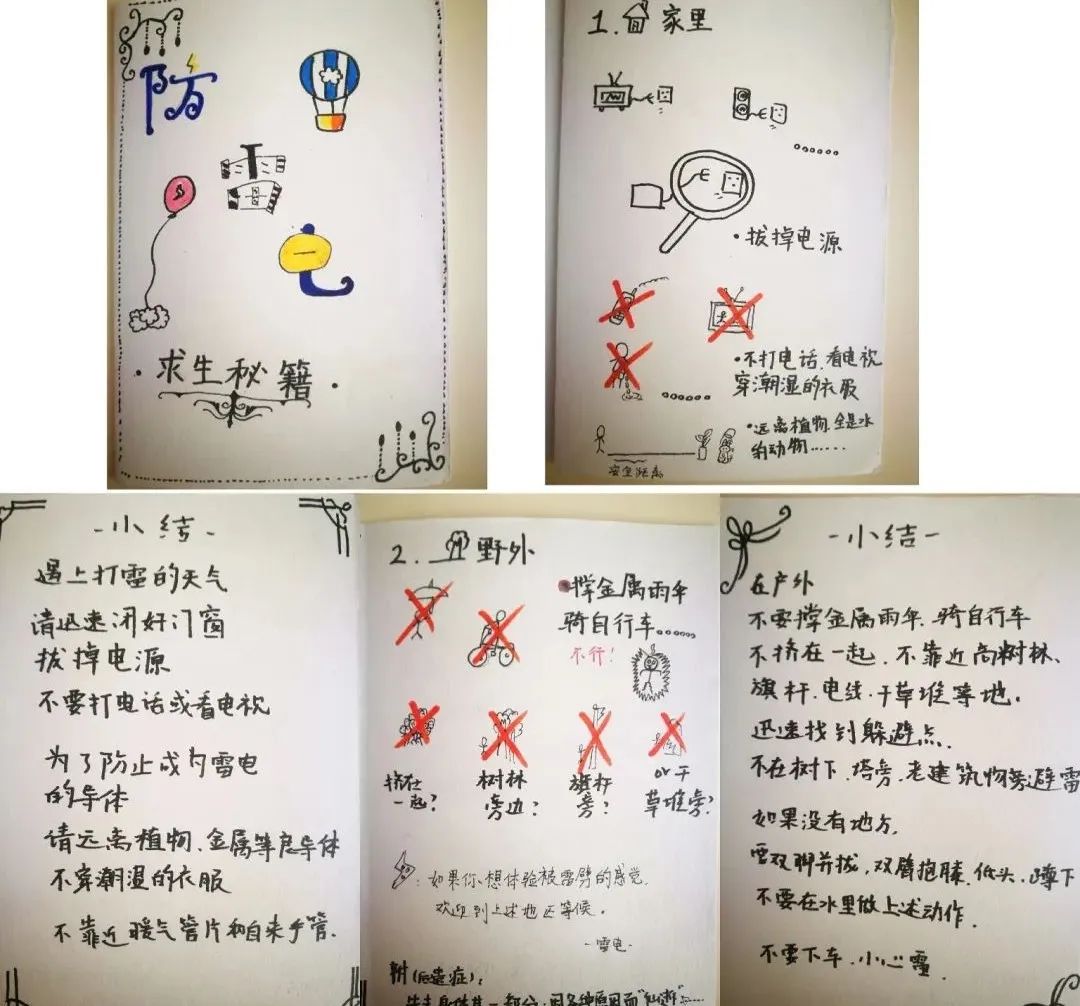 防
雷
电
·求生秘籍·
1. 家里
·拔掉电源
·不打电话、看电视
穿潮湿的衣服
·远离植物、全是水
的动物......
安全距离
-小结-
遇上打雷的天气
请迅速闭好门窗
拔掉电源
不要打电话或看电视
为了防止成为雷电
的导体
请远离植物、金属等良导体
不穿潮湿的衣服
不靠近暖气管片和自来水管.
2. 野外
撑金属雨伞
骑自行车......
不行！
挤在
一起?
树林
旁边?
旗杆
旁?
or干
草堆旁?
:如果你想体验被雷劈的感觉.
欢迎到上述地区等候.
-雷电-
树(后遗症):
-小结-
在户外
不要撑金属雨伞.骑自行车
不挤在一起.不靠近高树林、
旗杆.电线.干草堆等地.
迅速找到躲避点.
不在树下.塔旁.老建筑物旁避雷
如果没有地方.
需双脚并拢,双臂抱膝.低头.蹲下
不要在水里做上述动作.
不要下车.小心雷